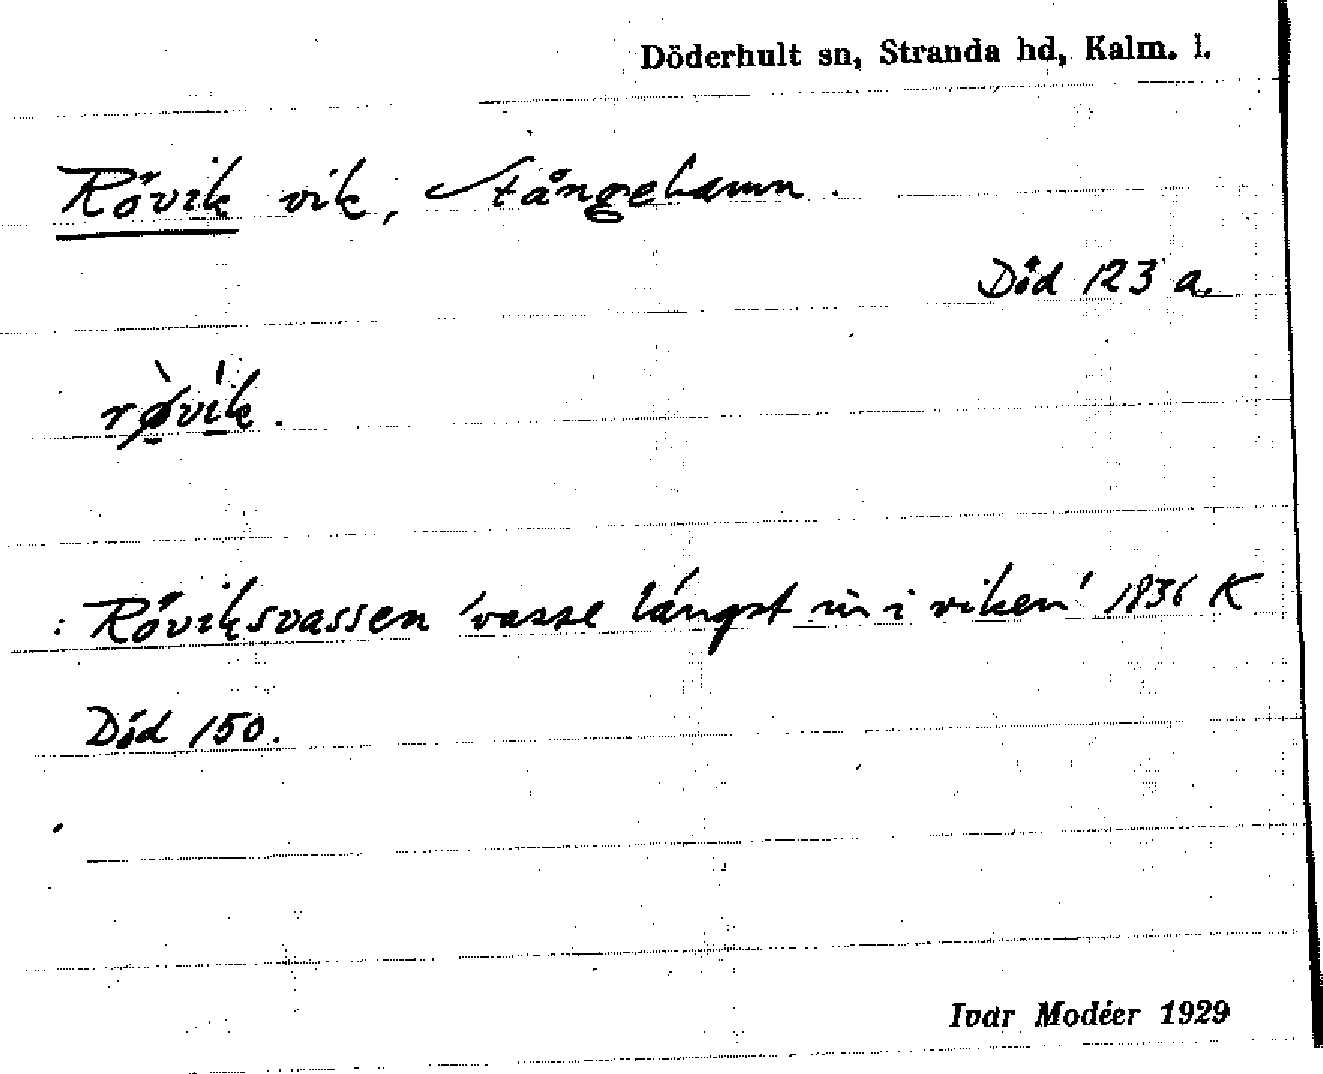 Döderhult sn, Stranda hd, Kalm. l.
Rövik vik, Stångehamn.
Död 123 a.
rø̀vìk.
: Röviksvassen 'vasse längst in i viken' 1836 K
Död 150.
Ivar Modéer 1929